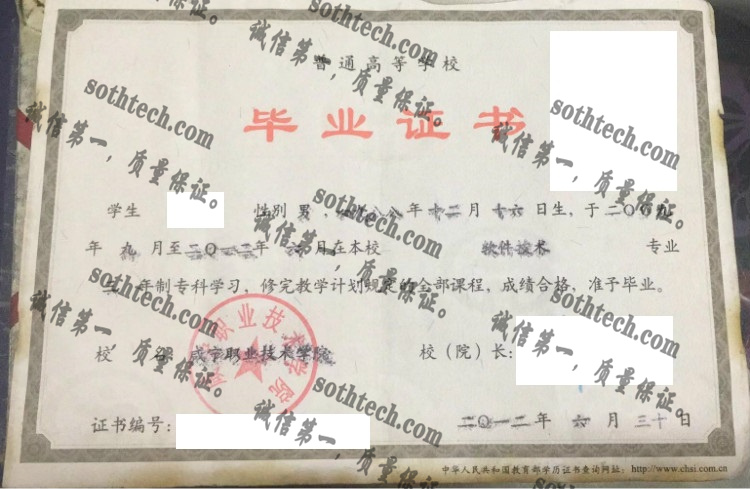 普通高等学校
毕业证书
学生 性别 男，一九八八年十二月十六日生，于二〇〇九
年九月至二〇一二年六月在本校 软件技术 专业
三年制专科学习，修完教学计划规定的全部课程，成绩合格，准予毕业。
校 名：咸宁职业技术学院 校（院）长：
证书编号： 二〇一二年六月三十日
中华人民共和国教育部学历证书查询网址：http://www.chsi.com.cn
职业技术学院
sothtech.com
诚信第一，质量保证。
sothtech.com
诚信第一，质量保证。
sothtech.com
诚信第一，质量保证。
sothtech.com
诚信第一，质量保证。
sothtech.com
诚信第一，质量保证。
sothtech.com
诚信第一，质量保证。
sothtech.com
诚信第一，质量保证。
sothtech.com
诚信第一，质量保证。